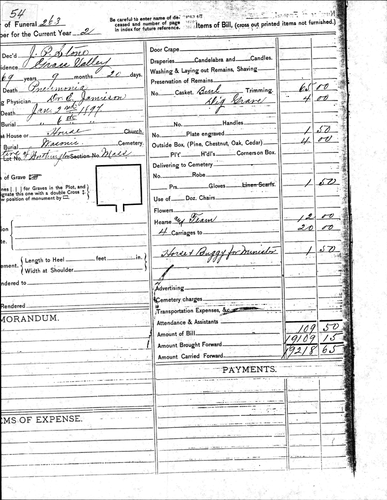 54
of Funeral 263
ber for the Current Year 2
Be carefull to enter name of de
ceased and number of page
in index for future reference.
Items of Bill, (cross out printed items not furnished.)
Dec'd J. P. Stone
idence Chase Valley
69 years 9 months 20 days
Death Pneumonia
g Physician Dr. E. Jamison
Death Jany 2nd 1897
Burial " 6th "
at House or House Church
Burial Masonic Cemetery
Lot No. Section No.
ize of Grave
s [ ] for Graves in the Plot, and
signate this one with a double Cross
position of monument by
ement. Length to Heel feet in.
Width at Shoulder
ndered to
Rendered
MORANDUM.
EMS OF EXPENSE.
Door Crape
Draperies Candelabra and Candles.
Washing & Laying out Remains, Shaving
Preservation of Remains
No. Casket. Burl Trimming. 65 00
Dig Grave 4 00
No. Handles
Plate engraved 1 50
Outside Box, (Pine, Chestnut, Oak, Cedar) 4 00
PlY H'dl's Corners on Box.
Delivering to Cemetery
No. Robe
Prs. Gloves Linen Scarfs. 1 50
Use of Doc. Chairs
Flowers
Hearse w/ Team 12 00
4 Carriages to 20 00
Horse & Buggy for Minister 1 50
Advertising
Cemetery charges
Transportation Expenses, &c
Attendance & Assistants
Amount of Bill 109 50
Amount Brought Forward 19109 15
Amount Carried Forward 19218 65
PAYMENTS.